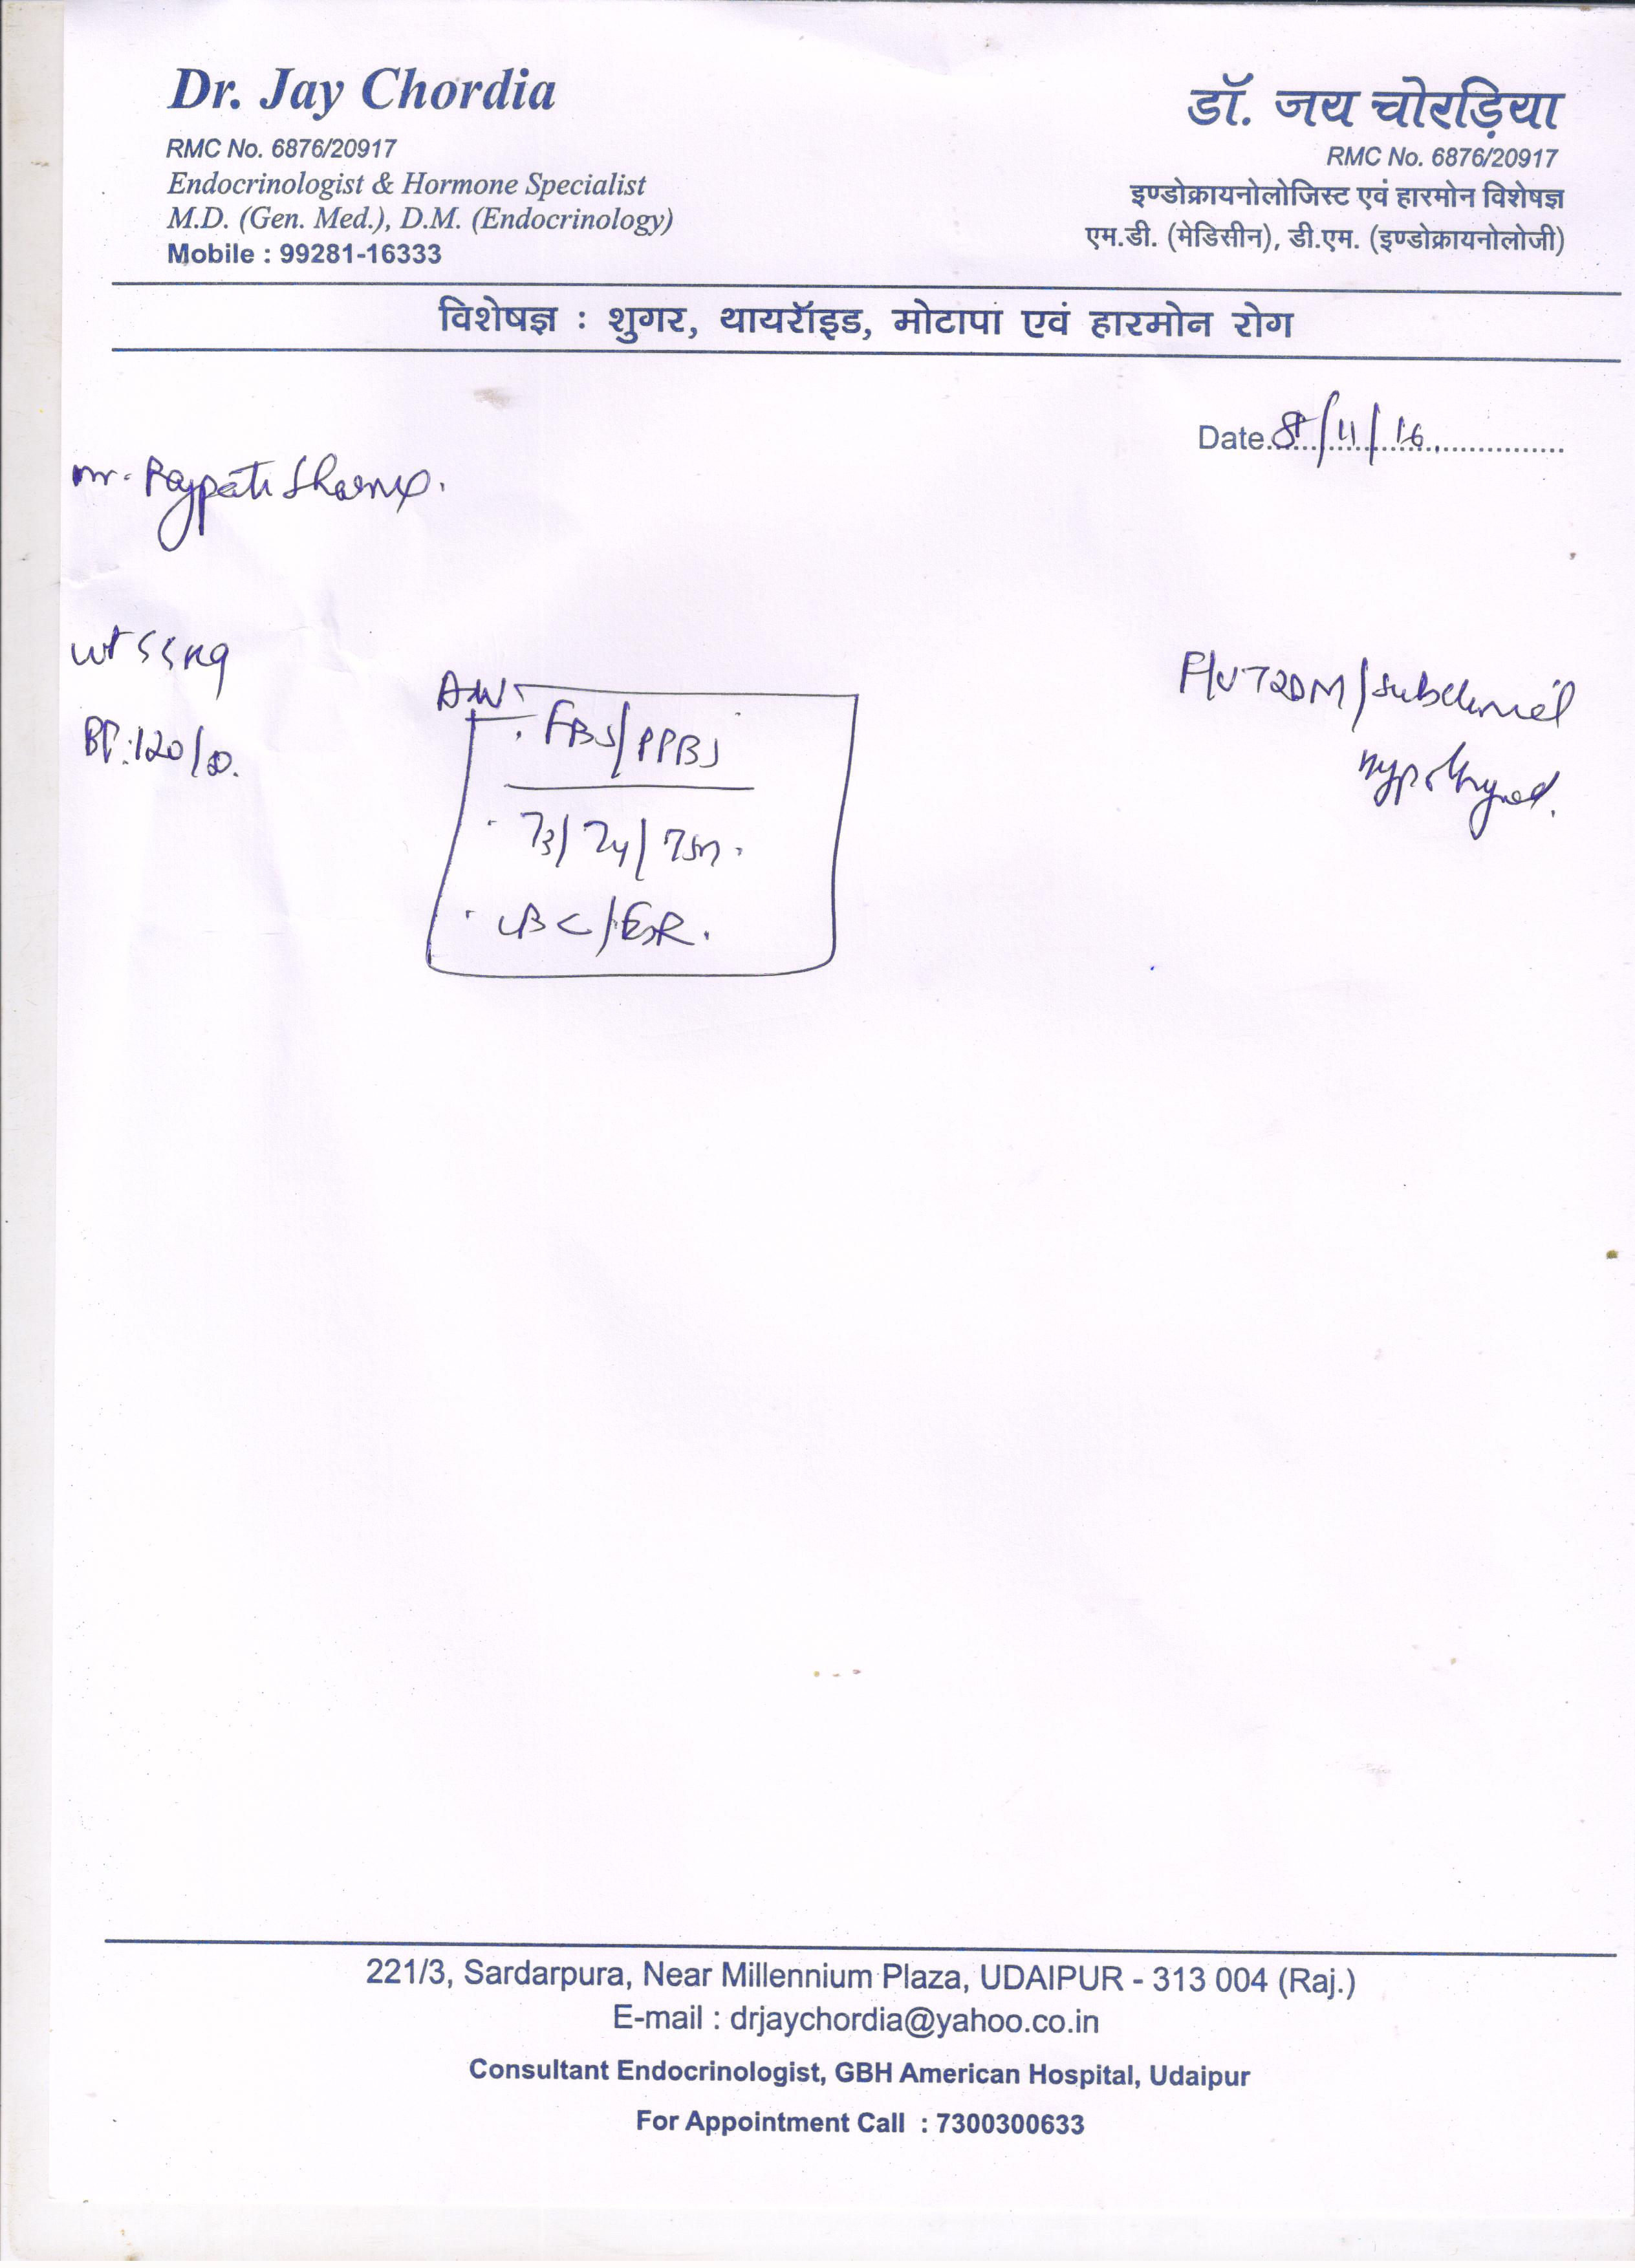 Dr. Jay Chordia
RMC No. 6876/20917
Endocrinologist & Hormone Specialist
M.D. (Gen. Med.), D.M. (Endocrinology)
Mobile : 99281-16333
डॉ. जय चोरड़िया
RMC No. 6876/20917
इण्डोक्रायनोलोजिस्ट एवं हारमोन विशेषज्ञ
एम.डी. (मेडिसीन), डी.एम. (इण्डोक्रायनोलोजी)
विशेषज्ञ : शुगर, थायरॉइड, मोटापा एवं हारमोन रोग
Date 8/11/16
mr. Rajpati Sharma.
wt 55 kg
BP: 120/
F/U T2DM/subclinical
hypothyroid.
FBS/PPBS
T3/T4/TSH.
CBC/ESR.
221/3, Sardarpura, Near Millennium Plaza, UDAIPUR - 313 004 (Raj.)
E-mail : drjaychordia@yahoo.co.in
Consultant Endocrinologist, GBH American Hospital, Udaipur
For Appointment Call : 7300300633